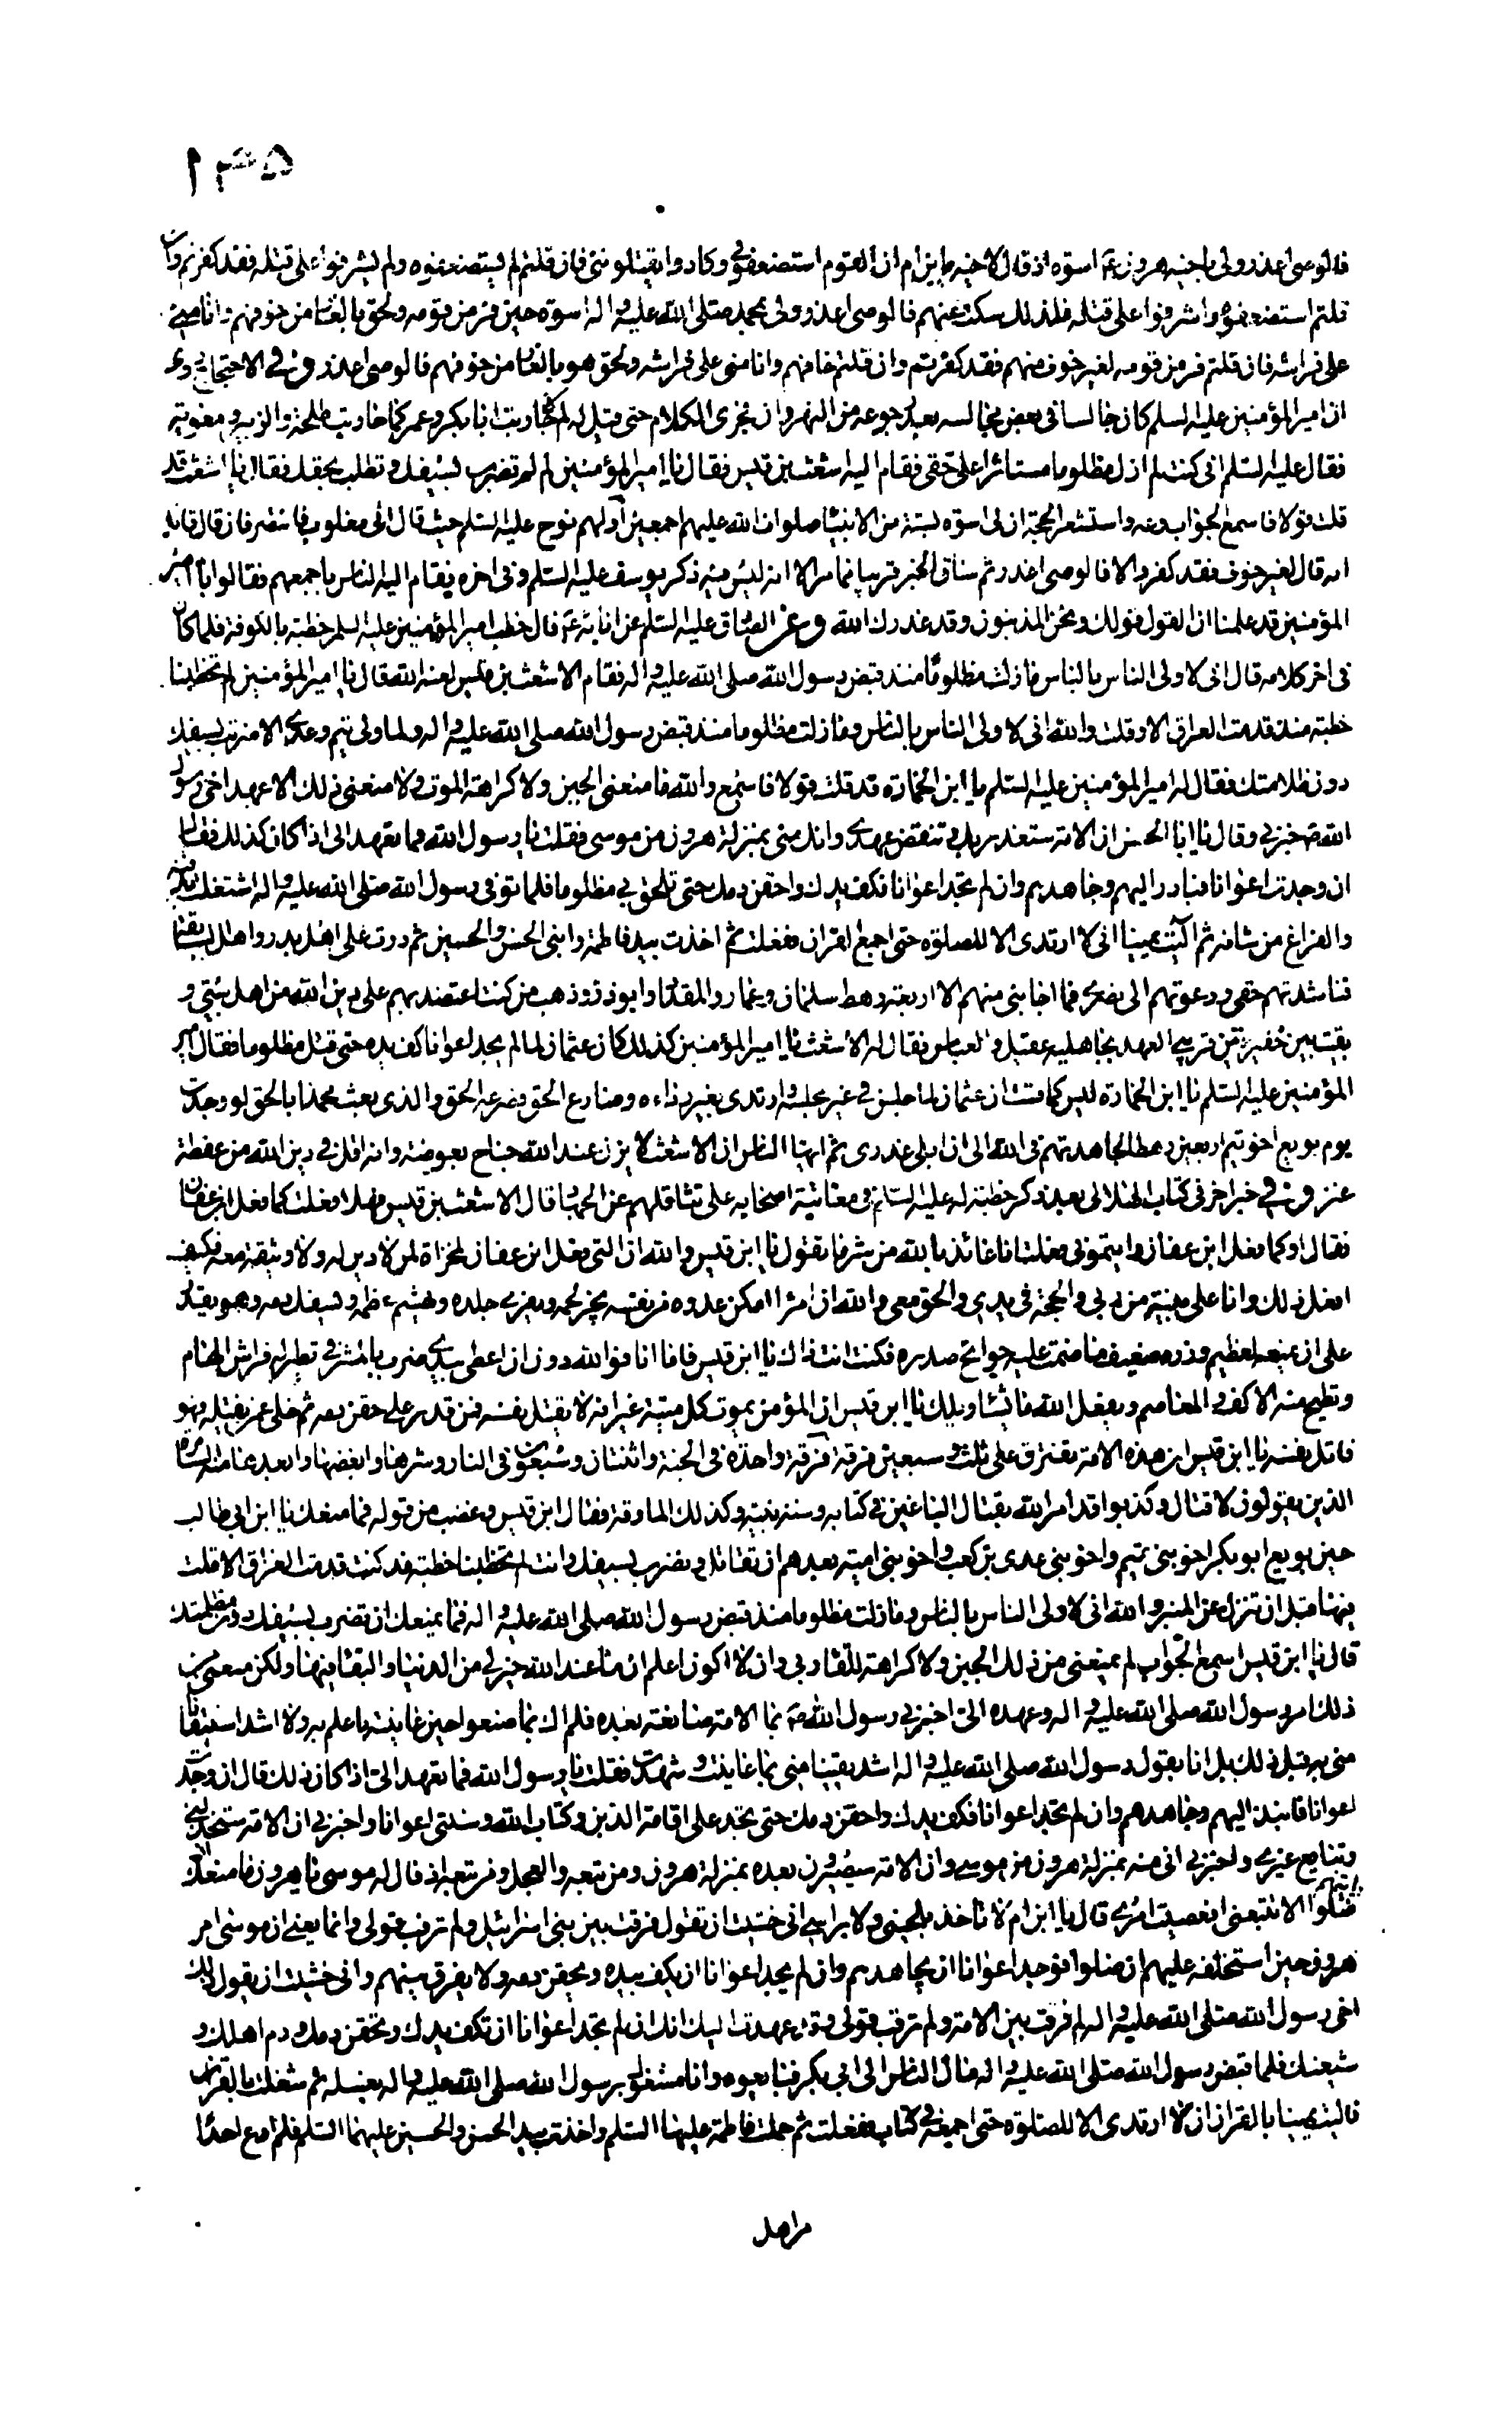 ١٣٥
فالوصى اعذر ولى باخيه هرون ع اسوة اذ قال لاخيه يابن ام ان القوم استضعفونى وكادوا يقتلوننى فان قلتم لم يستضعفوه ولم يشرفوا على قتله فقد كفرتم وان
قلتم استضعفوه واشرفوا على قتله فلذلك سكت عنهم فالوصى اعذر ولى بمحمد صلى الله عليه واله اسوة حين فر من قومه ولحق بالغار من خوفهم وانامنى
على فراشه فان قلتم فر من قومه لغير خوف منهم فقد كفرتم وان قلتم خافهم وانامنى على فراشه ولحق هو بالغار من خوفهم فالوصى اعذر وفى الاحتجاج روى
ان امير المؤمنين عليه السلم كان جالسا فى بعض مجالسه بعد رجوعه من النهروان فجرى الكلام حتى قيل له لم لا حاربت ابابكر وعمر كما حاربت طلحة والزبير ومعوية
فقال عليه السلم انى كنت لم ازل مظلوما مستاثرا على حقى فقام اليه اشعث بن قيس فقال يا امير المؤمنين لم لم تضرب بسيفك وتطلب بحقك فقال يا اشعث قد
قلت قولا فاسمع الجواب وعه واستشعر الحجة ان لى اسوة بستة من الانبياء صلوات الله عليهم اجمعين اولهم نوح عليه السلم حيث قال انى مغلوب فانتصر فان قال قائل
انه قال لغير خوف فقد كفر والا فالوصى اعذر ثم ساق الخبر قريبا مما مر الا انه ليس فيه ذكر يوسف عليه السلم وفى اخره فقام اليه الناس باجمعهم فقالوا يا امير
المؤمنين قد علمنا ان القول قولك ونحن المذنبون وقد عذرك الله وعن الصادق عليه السلم عن ابائه ع قال خطب امير المؤمنين عليه السلم خطبة بالكوفة فلما كان
فى اخر كلامه قال انى لاولى الناس بالناس مازلت مظلوما منذ قبض رسول الله صلى الله عليه واله فقام الاشعث بن قيس لعنه الله فقال يا امير المؤمنين لم تخطبنا
خطبة منذ قدمت العراق الا وقلت والله انى لاولى الناس بالناس ومازلت مظلوما منذ قبض رسول الله صلى الله عليه واله ولما ولى تيم وعدى الا ضربت بسيفك
دون ظلامتك فقال له امير المؤمنين عليه السلم يا ابن الخمارة قد قلت قولا فاسمع والله ما منعنى الجبن ولا كراهة الموت ولا منعنى ذلك الا عهد اخى رسول
الله ص خبرنى وقال يا ابا الحسن ان الامة ستغدر بك وتنقض عهدى وانك منى بمنزلة هرون من موسى فقلت يا رسول الله فما تعهد الى اذا كان كذلك فقال
ان وجدت اعوانا فبادر اليهم وجاهدهم وان لم تجد اعوانا فكف يدك واحقن دمك حتى تلحق بى مظلوما فلما توفى رسول الله صلى الله عليه واله اشتغلت بدفنه
والفراغ من شانه ثم اليت يمينا انى لا ارتدى الا للصلوة حتى اجمع القران ففعلت ثم اخذت بيد فاطمة وابنى الحسن والحسين ثم درت على اهل بدر واهل السابقة
فناشدتهم حقى ودعوتهم الى نصرى فما اجابنى منهم الا اربعة رهط سلمان وعمار والمقداد وابوذر وذهب من كنت اعتضد بهم على دين الله من اهل بيتى و
بقيت بين خفيرتين قريبى العهد بجاهلية عقيل والعباس فقال له الاشعث يا امير المؤمنين كذلك كان عثمان لما لم يجد اعوانا كف يده حتى قتل مظلوما فقال امير
المؤمنين عليه السلم يا ابن الخمارة ليس كما قست ان عثمان لما جلس فى غير مجلسه وارتدى بغير رداءه وصارع الحق فصرعه الحق والذى بعث محمدا بالحق لو وجدت
يوم بويع اخو تيم اربعين رهطا لجاهدتهم فى الله الى ان ابلى عذرى ثم ايها الناس ان الاشعث لا يزن عند الله جناح بعوضة وانه اقل فى دين الله من عفطة
عنز وفى خبر اخر فى كتاب الهلالى بعد ذكر خطبته له عليه السلم فى معاتبة اصحابه على تثاقلهم عن الجهاد قال الاشعث بن قيس فهلا فعلت كما فعل ابن عفان
فقال اوكما فعل ابن عفان رايتمونى فعلت انا عائذ بالله من شر ما تقول يا ابن قيس والله ان التى فعل ابن عفان لمخزاة لمن لا دين له ولا وثيقة معه فكيف
افعل ذلك وانا على بينة من ربى والحجة فى يدى والحق معى والله ان امرا امكن عدوه من نفسه يجز لحمه ويفرى جلده ويهشم عظمه ويسفك دمه وهو يقدر
على ان يمنعه لعظيم وزره ضعيف ما ضمت عليه جوانح صدره فكنت انت ذاك يا ابن قيس فاما انا فوالله دون ان اعطى بيدى ضرب بالمشرفى تطير له فراش الهام
وتطيح منه الاكف والمعاصم ويفعل الله ما يشاء ويلك يا ابن قيس ان المؤمن يموت كل ميتة غير انه لا يقتل نفسه فمن قدر على حقن دمه ثم خلى عمن يقتله فهو
قاتل نفسه يا ابن قيس ان هذه الامة تفترق على ثلث وسبعين فرقة فرقة واحدة فى الجنة واثنتان وسبعون فى النار وشرها وابغضها وابعدها منه السامرة
الذين يقولون لا قتال وكذبوا قد امر الله بقتال الباغين فى كتابه وسنة نبيه وكذلك المارقة فقال ابن قيس وغضب من قوله فما منعك يا ابن ابى طالب
حين بويع ابو بكر اخو بنى تيم واخو بنى عدى بن كعب واخو بنى امية بعدهم ان تقاتل وتضرب بسيفك وانت لم تخطبنا خطبة مذ كنت قدمت العراق الا قلت
فيها قبل ان تنزل عن المنبر والله انى لاولى الناس بالناس ومازلت مظلوما منذ قبض رسول الله صلى الله عليه واله فما يمنعك ان تضرب بسيفك دون مظلمتك
قال يا ابن قيس اسمع الجواب لم يمنعنى من ذلك الجبن ولا كراهة للقاء ربى وان لا اكون اعلم ان ما عند الله خير لى من الدنيا والبقاء فيها ولكن منعنى من
ذلك امر رسول الله صلى الله عليه واله وعهده الى اخبرنى رسول الله ص بما الامة صانعة بعده فلم اك بما صنعوا حين عاينته باعلم به ولا اشد استيقانا
منى به قبل ذلك بل انا بقول رسول الله صلى الله عليه واله اشد يقينا منى بما عاينت وشهدت فقلت يا رسول الله فما تعهد الى اذا كان ذلك قال ان وجدت
اعوانا فانبذ اليهم وجاهدهم وان لم تجد اعوانا فكف يدك واحقن دمك حتى تجد على اقامة الدين وكتاب الله وسنتى اعوانا واخبرنى ان الامة ستخذلنى
وتبايع غيرى واخبرنى انى منه بمنزلة هرون من موسى وان الامة سيصيرون بعده بمنزلة هرون ومن تبعه والعجل ومن تبعه اذ قال له موسى يا هرون ما منعك اذ
رايتهم ضلوا الا تتبعنى افعصيت امرى قال يا ابن ام لا تاخذ بلحيتى ولا براسى انى خشيت ان تقول فرقت بين بنى اسرائيل ولم ترقب قولى وانما يعنى ان موسى امر
هرون حين استخلفه عليهم ان ضلوا فوجد اعوانا ان يجاهدهم وان لم يجد اعوانا ان يكف يده ويحقن دمه ولا يفرق بينهم وانى خشيت ان يقول ذلك
اخى رسول الله صلى الله عليه واله لم فرقت بين الامة ولم ترقب قولى وقد عهدت اليك انك ان لم تجد اعوانا ان تكف يدك وتحقن دمك ودم اهلك و
شيعتك فلما قبض رسول الله صلى الله عليه واله مال الناس الى ابى بكر فبايعوه وانا مشغول برسول الله صلى الله عليه واله بغسله ثم شغلت بالقران
فاليت يمينا بالقران ان لا ارتدى الا للصلوة حتى اجمعه فى كتاب ففعلت ثم حملت فاطمة عليها السلم واخذت بيد الحسن والحسين عليهما السلم فلم ادع احدا
من اهل